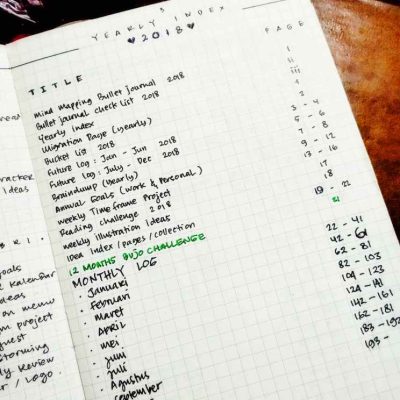 YEARLY INDEX
♥ 2018 ♥
TITLE PAGE
Mind Mapping Bullet Journal 2018 i
Bullet journal check list 2018 ii
Yearly Index iii
Migration Page (yearly) 1
Bucket list 2018 2
Future log : Jan - Jun 2018 3 - 4
Future log : July - Dec 2018 5 - 6
Braindump (Yearly) 7 - 8
Annual Goals (Work & Personal) 9 - 12
weekly Timeframe Project 13 - 16
Reading challenge 2018 17
weekly illustration Ideas 18
Idea Index / pages / collection 19 - 22
12 MONTHS BUJO CHALLENGE 21
MONTHLY LOG
· Januari 22 - 41
· Februari 42 - 61
· Maret 62 - 81
· April 82 - 103
· mei 104 - 123
· juni 124 - 141
· juli 142 - 161
· Agustus 162 - 181
· September 183 - 192
193 -
racker
Ideas
oals
kalender
deas
on memo
m project
quest
storming
ly Review
r / Logo.